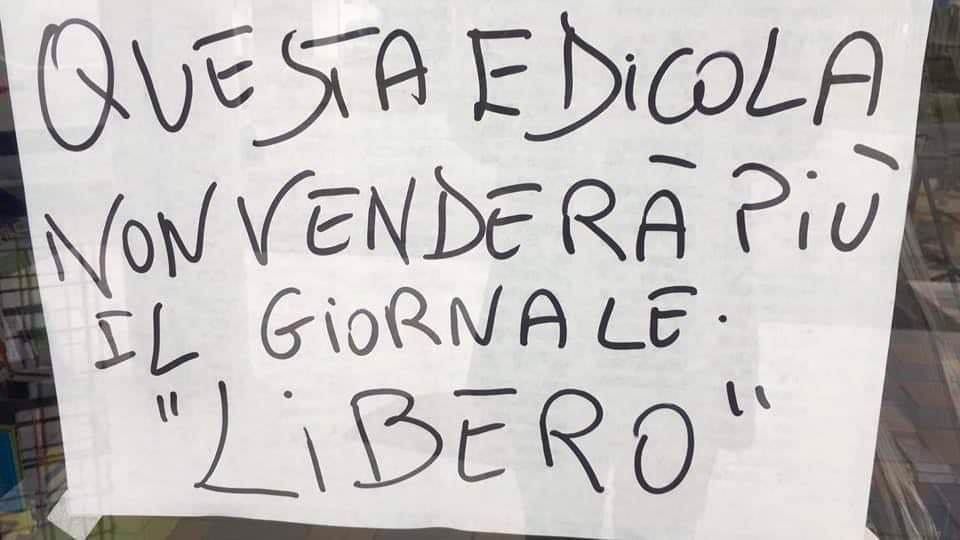 QUESTA EDICOLA
NON VENDERÀ PIÙ
IL GIORNALE.
"LIBERO"